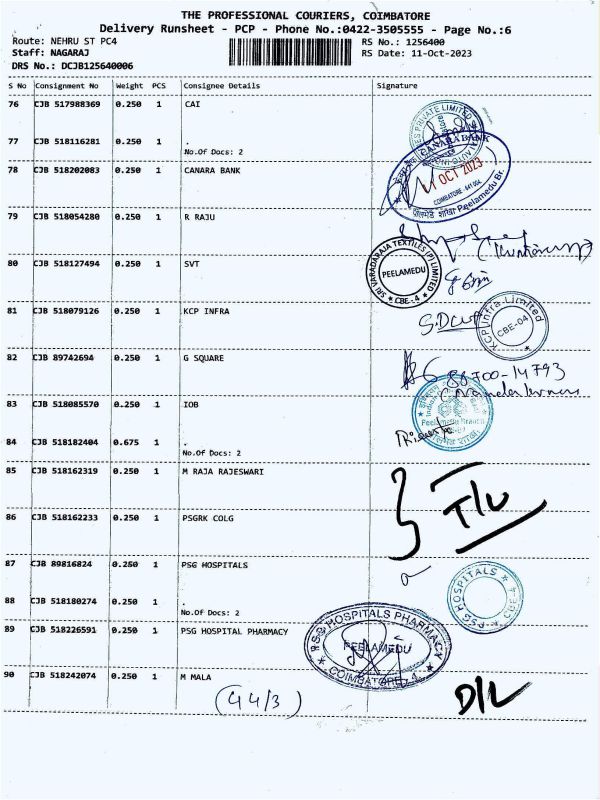 THE PROFESSIONAL COURIERS, COIMBATORE
Delivery Runsheet - PCP - Phone No.:0422-3505555 - Page No.:6
Route: NEHRU ST PC4 RS No.: 1256400
Staff: NAGARAJ RS Date: 11-Oct-2023
DRS No.: DCJB125640006
S No Consignment No Weight PCS Consignee Details Signature
76 CJB 517988369 0.250 1 CAI
PRIVATE LIMITED
77 CJB 518116281 0.250 1 .
No.Of Docs: 2
78 CJB 518202083 0.250 1 CANARA BANK
CANARA BANK
1 OCT 2023
COIMBATORE - 641 004
Peelamedu Br.
79 CJB 518054280 0.250 1 R RAJU
80 CJB 518127494 0.250 1 SVT
SRI VARADARAJA TEXTILES (P) LIMITED
PEELAMEDU
CBE-4
81 CJB 518079126 0.250 1 KCP INFRA
KCP Infra Limited
CBE-04
82 CJB 89742694 0.250 1 G SQUARE
88700-14793
83 CJB 518085570 0.250 1 IOB
Peelamedu Branch
84 CJB 518182404 0.675 1 .
No.Of Docs: 2
85 CJB 518162319 0.250 1 M RAJA RAJESWARI
T/L
86 CJB 518162233 0.250 1 PSGRK COLG
87 CJB 89816824 0.250 1 PSG HOSPITALS
PSG HOSPITALS
CBE-4
88 CJB 518180274 0.250 1 .
No.Of Docs: 2
89 CJB 518226591 0.250 1 PSG HOSPITAL PHARMACY
P.S.G HOSPITALS PHARMACY
PEELAMEDU
COIMBATORE-4
90 CJB 518242074 0.250 1 M MALA
D/L
(44/3)